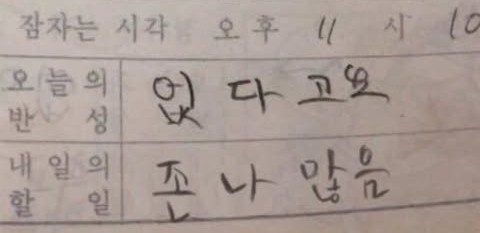 잠자는 시각 오후 11 시 10
오늘의 반성 없다고요
내일의 할 일 존나 많음